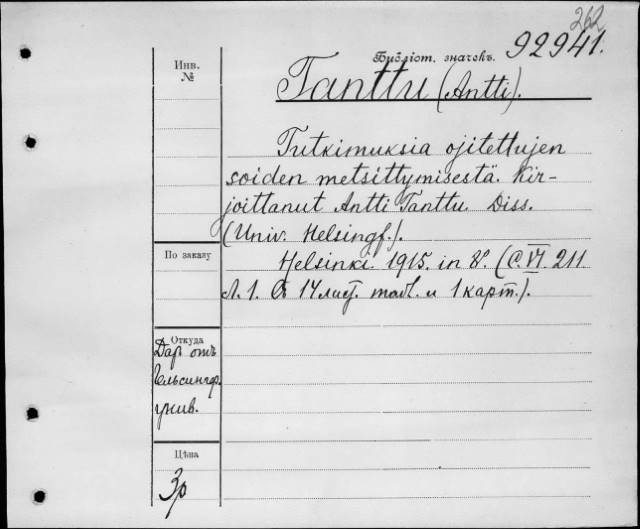 262
Библіот. значекъ. 92941.
Инв.
№
Tanttu (Antti).
Tutkimuksia ojitettujen
soiden metsittymisestä. Kir-
joittanut Antti Tanttu. Diss.
(Univ. Helsingf.).
По заказу
Helsinki. 1915. in 8°. (C. VI. 211
л. 1. Съ 14 лист. табл. и 1 карт.).
Откуда
Дар отъ
Гельсингф.
унив.
Цѣна
3р